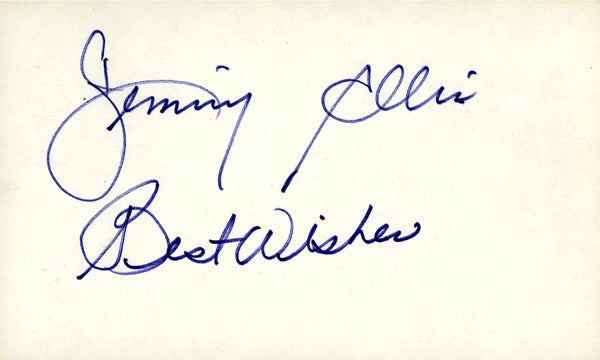 Jimmy Ellis
Best Wishes